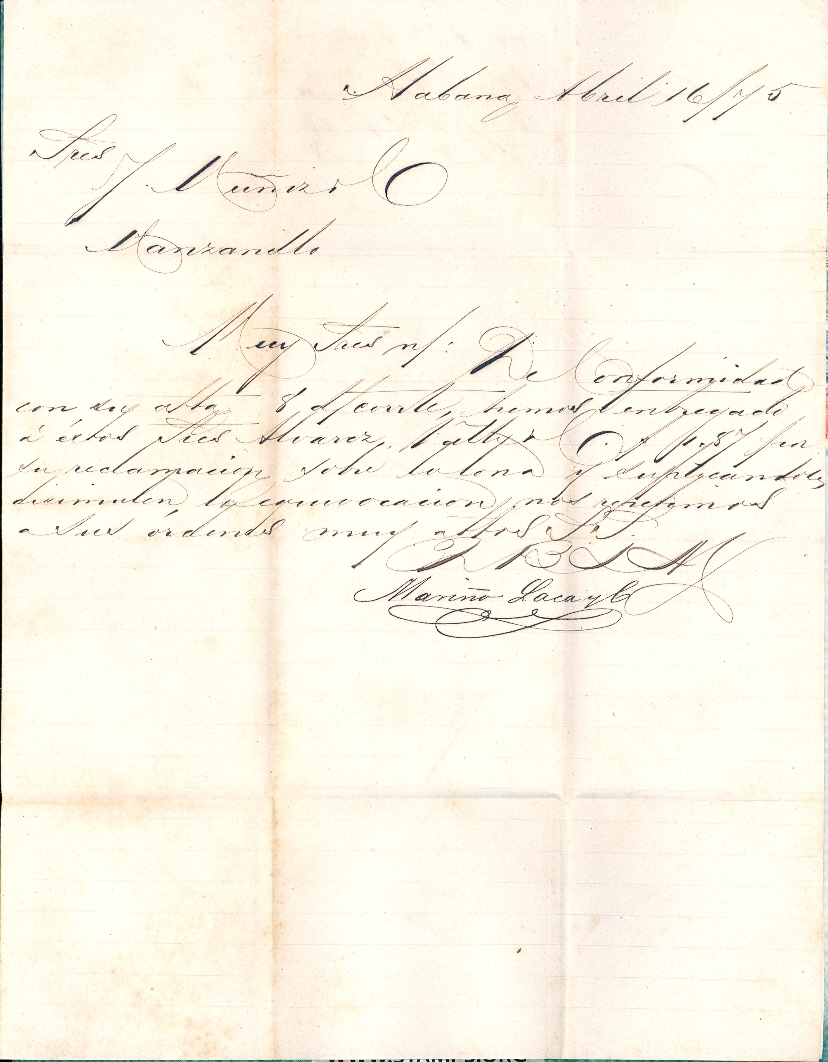 Habana Abril 16/75
Sres
J. Muñiz y Cº
Manzanillo
Muy Sres n/: De Conformidad
con su atta 8 d/corrte, hemos entregado
á éstos Sres Alvarez, y Cº $ 1,87 por
su reclamacion sobre la lona y suplicandoles
disimulen la equivocacion, nos repetimos
a sus órdenes muy attos S.S.
Q B S M
Mariño Laca y C